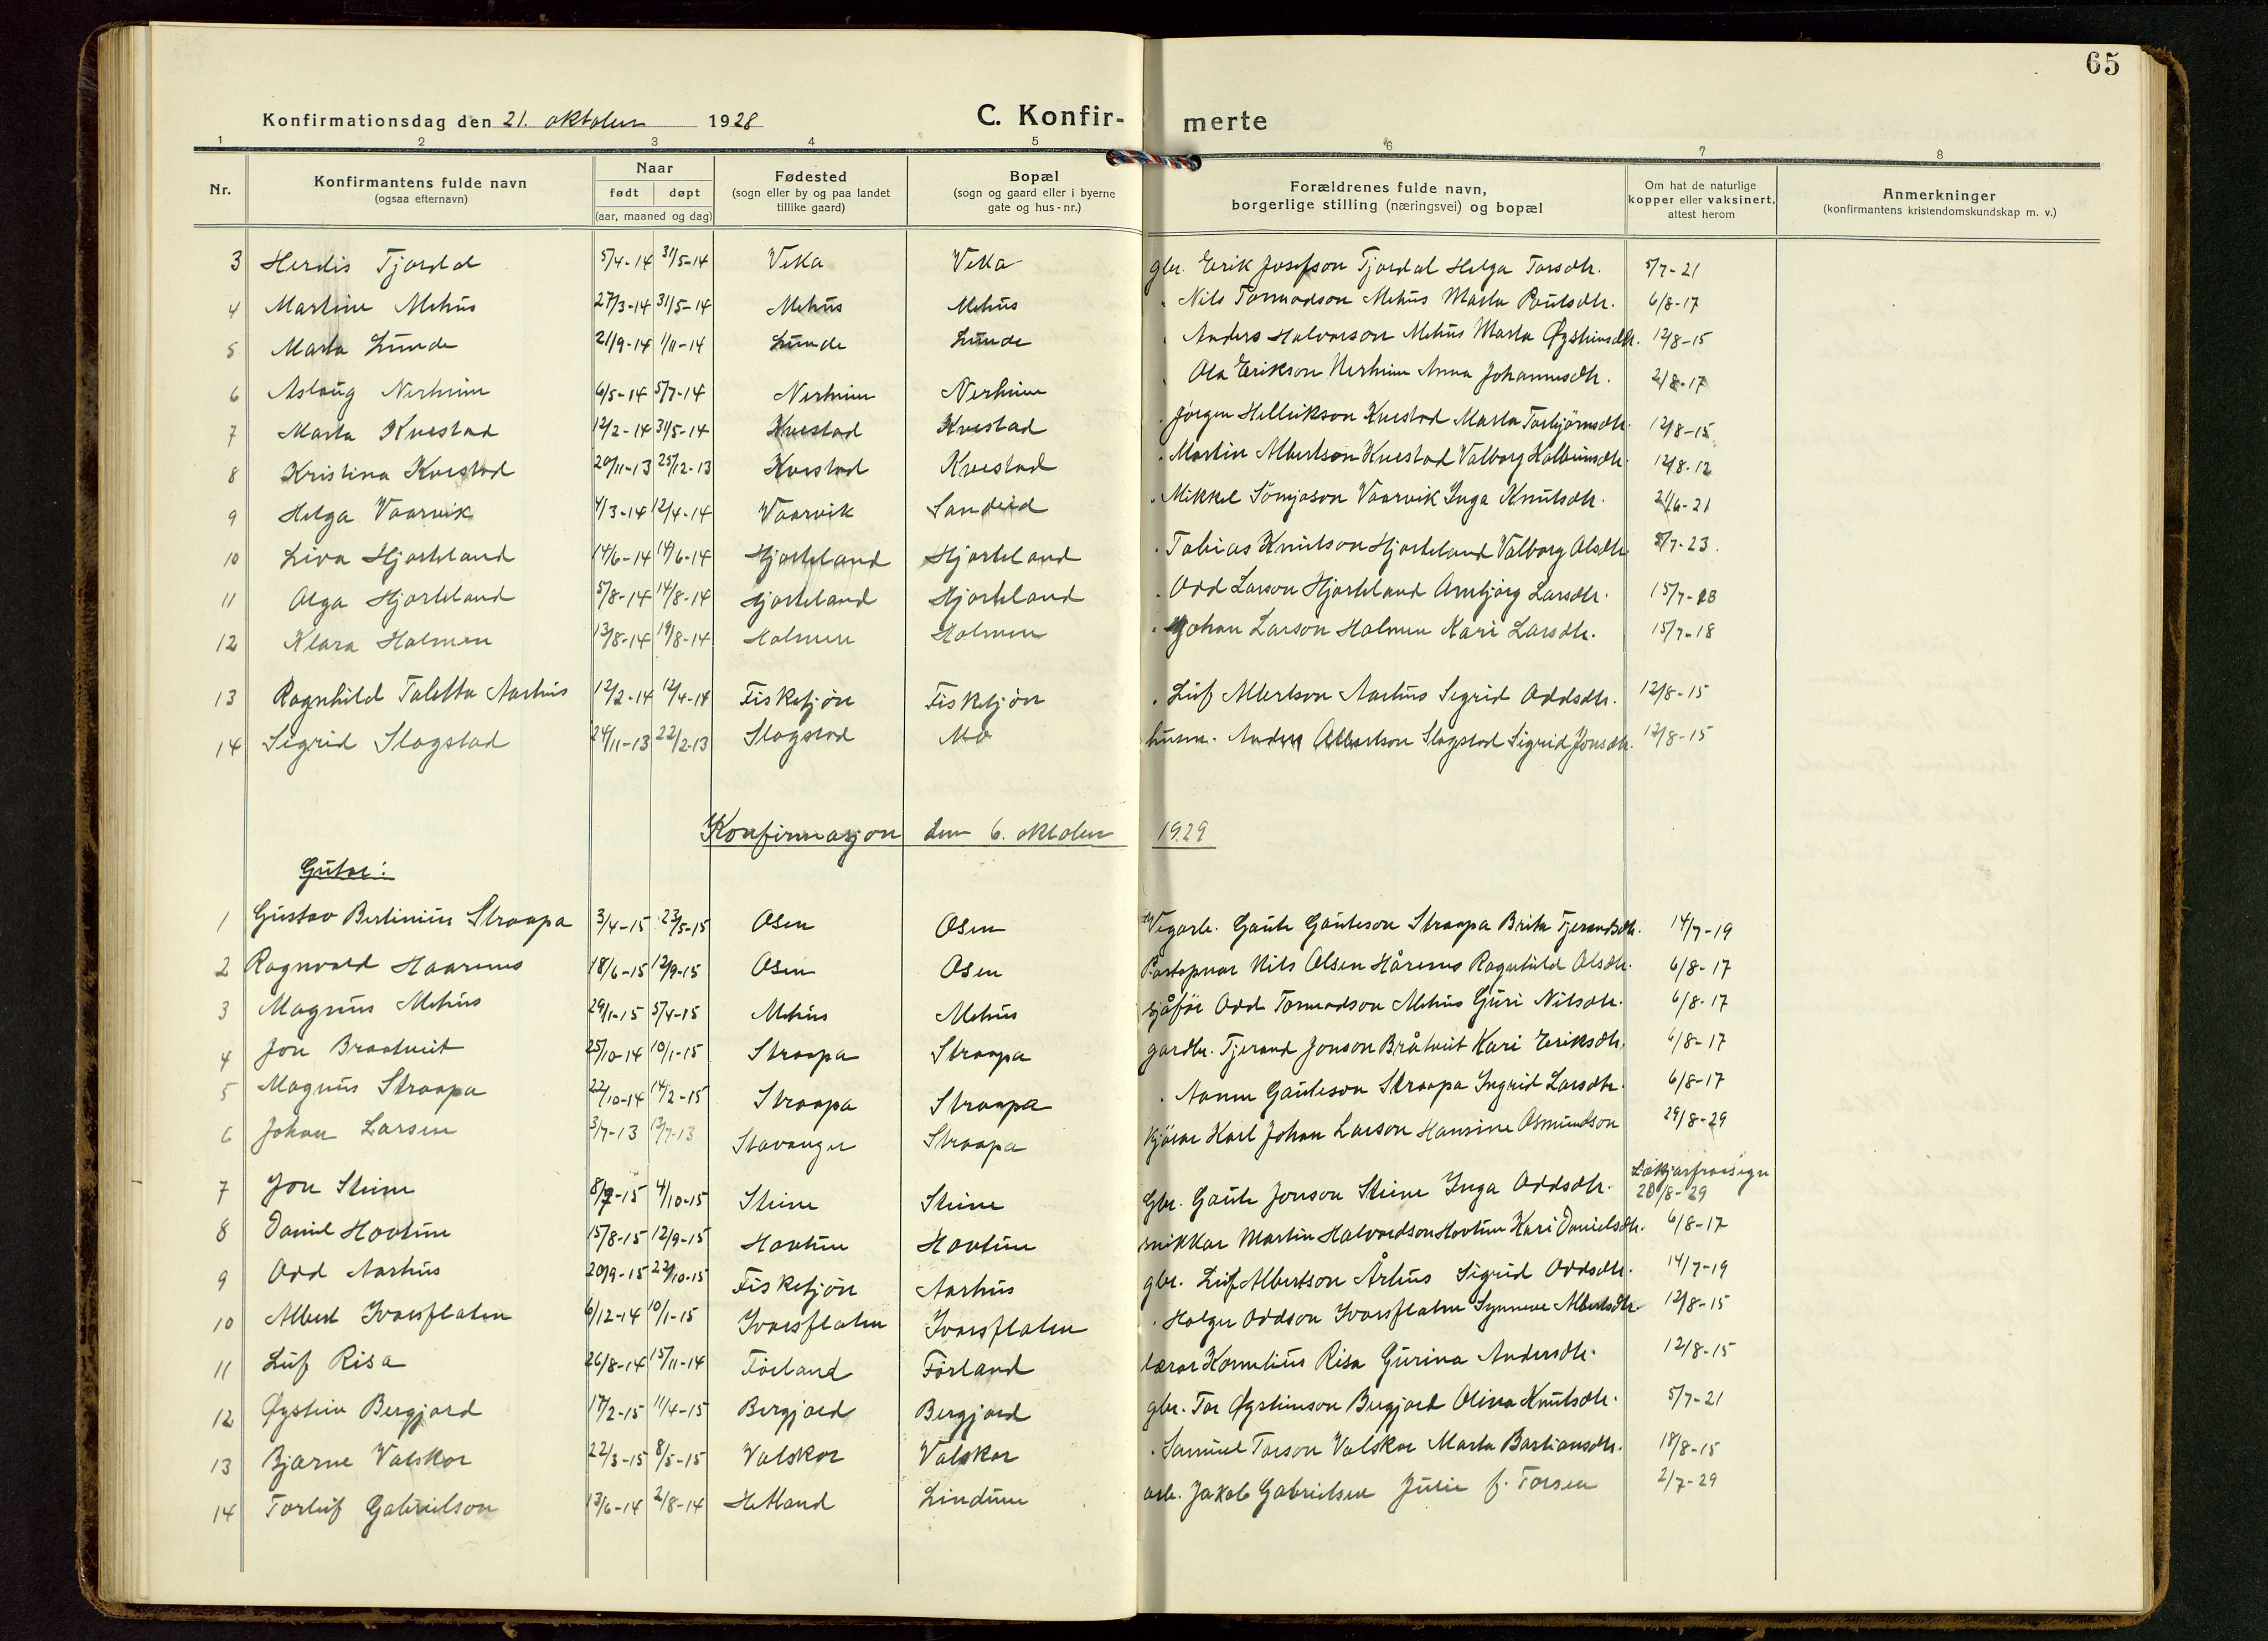 65
Konfirmationsdag den 21. oktober 1928 C. Konfir- merte
1 2 3 4 5 6 7 8
Nr. Konfirmantens fulde navn (ogsaa efternavn) Naar født døpt (aar, maaned og dag) Fødested (sogn eller by og paa landet tillike gaard) Bopæl (sogn og gaard eller i byerne gate og hus-nr.) Forældrenes fulde navn, borgerlige stilling (næringsvei) og bopæl Om hat de naturlige kopper eller vaksinert, attest herom Anmerkninger (konfirmantens kristendomskundskap m. v.)
3 Herdis Tjordal 5/4-14 31/5-14 Veka Veka gbr. Erik Josefson Tjordal Helga Torsdtr. 5/7-21
4 Martine Mehus 27/3-14 31/5-14 Mehus Mehus " Nils Tormodson Mehus Marta Poulsdtr. 6/8-17
5 Marta Lunde 21/9-14 1/11-14 Lunde Lunde " Anders Halvorson Mehus Marta Øysteinsdtr. 12/8-15
6 Aslaug Nerheim 6/5-14 5/7-14 Nerheim Nerheim " Ola Erikson Nerheim Anna Johannesdtr. 2/8-17
7 Marta Kvestad 12/2-14 31/5-14 Kvestad Kvestad " Jørgen Helleikson Kvestad Marta Torbjørnsdtr. 12/8-15
8 Kristina Kvestad 20/11-13 25/12-13 Kvestad Kvestad " Martin Albertson Kvestad Valborg Kolbeinsdtr. 12/8-12
9 Helga Vaarvik 4/3-14 12/4-14 Vaarvik Sandeid " Mikkel Vaarvik Inga Knutsdtr. 21/6-21
10 Liva Hjorteland 14/6-14 14/6-14 Hjorteland Hjorteland " Tobias Knutson Hjorteland Valborg Olsdtr. 5/7-23
11 Olga Hjorteland 5/8-14 14/8-14 Hjorteland Hjorteland " Odd Larson Hjorteland Arnbjørg Larsdtr. 15/7-18
12 Klara Holmen 13/8-14 19/8-14 Holmen Holmen " Johan Larson Holmen Kari Larsdtr. 15/7-18
13 Ragnhild Taletta Aarhus 12/2-14 12/4-14 Fisketjøn Fisketjøn " Leif Albertson Aarhus Sigrid Oddsdtr. 12/8-15
14 Sigrid Slogstad 24/11-13 22/2-13 Slogstad Mo husm. Anders Albertson Slagstad Sigrid Jonsdtr. 12/8-15
Konfirmasjon den 6. oktober 1929
Gutar:
1 Gustav Bertinius Straapa 3/4-15 23/5-15 Osen Osen Vegarb. Gaute Gauteson Straapa Brita Tjerandsdtr. 14/7-19
2 Ragnvald Haarenes 18/6-15 12/9-15 Osen Osen Postopnar Nils Olsen Hårenes Ragnhild Olsdtr. 6/8-17
3 Magnus Mehus 29/1-15 5/4-15 Mehus Mehus sjåfør Odd Tormodson Mehus Guri Nilsdtr. 6/8-17
4 Jon Braatveit 25/10-14 10/1-15 Straapa Straapa gardbr. Tjerand Jonson Bråtveit Kari Eriksdtr. 6/8-17
5 Magnus Straapa 22/10-14 14/2-15 Straapa Straapa " Aanen Gauteson Straapa Ingrid Larsdtr. 6/8-17
6 Johan Larsen 3/7-13 13/7-13 Stavanger Straapa Kjørar Karl Johan Larson Hansine Osmundson 29/8-29
7 Jon Steine 8/7-15 4/10-15 Steine Steine Gbr. Gaute Jonson Steine Inga Oddsdtr. 20/8-29
8 Daniel Hovtun 15/8-15 12/9-15 Hovtun Hovtun snikkar Martin Halvordson Hovtun Kari Danielsdtr. 6/8-17
9 Odd Aarhus 20/9-15 22/10-15 Fisketjøn Aarhus gbr. Leif Albertson Århus Sigrid Oddsdtr. 14/7-19
10 Albert Ivarsflaten 6/12-14 10/1-15 Ivarsflaten Ivarsflaten " Holger Oddson Ivarsflaten Synneve Albertsdtr. 12/8-15
11 Leif Risa 26/8-14 15/11-14 Førland Førland lærar Kornelius Risa Gurina Andersdtr. 12/8-15
12 Øystein Bergjord 17/2-15 11/4-15 Bergjord Bergjord gbr. Tor Øysteinson Bergjord Olina Knutsdtr. 5/7-21
13 Bjarne Valskor 22/3-15 8/5-15 Valskor Valskor " Samuel Torson Valskor Marta Bastiansdtr. 18/8-15
14 Torleif Gabrielson 13/6-14 2/8-14 Hetland Lindum arb. Jakob Gabrielsen Julie f. Torsen 2/7-29